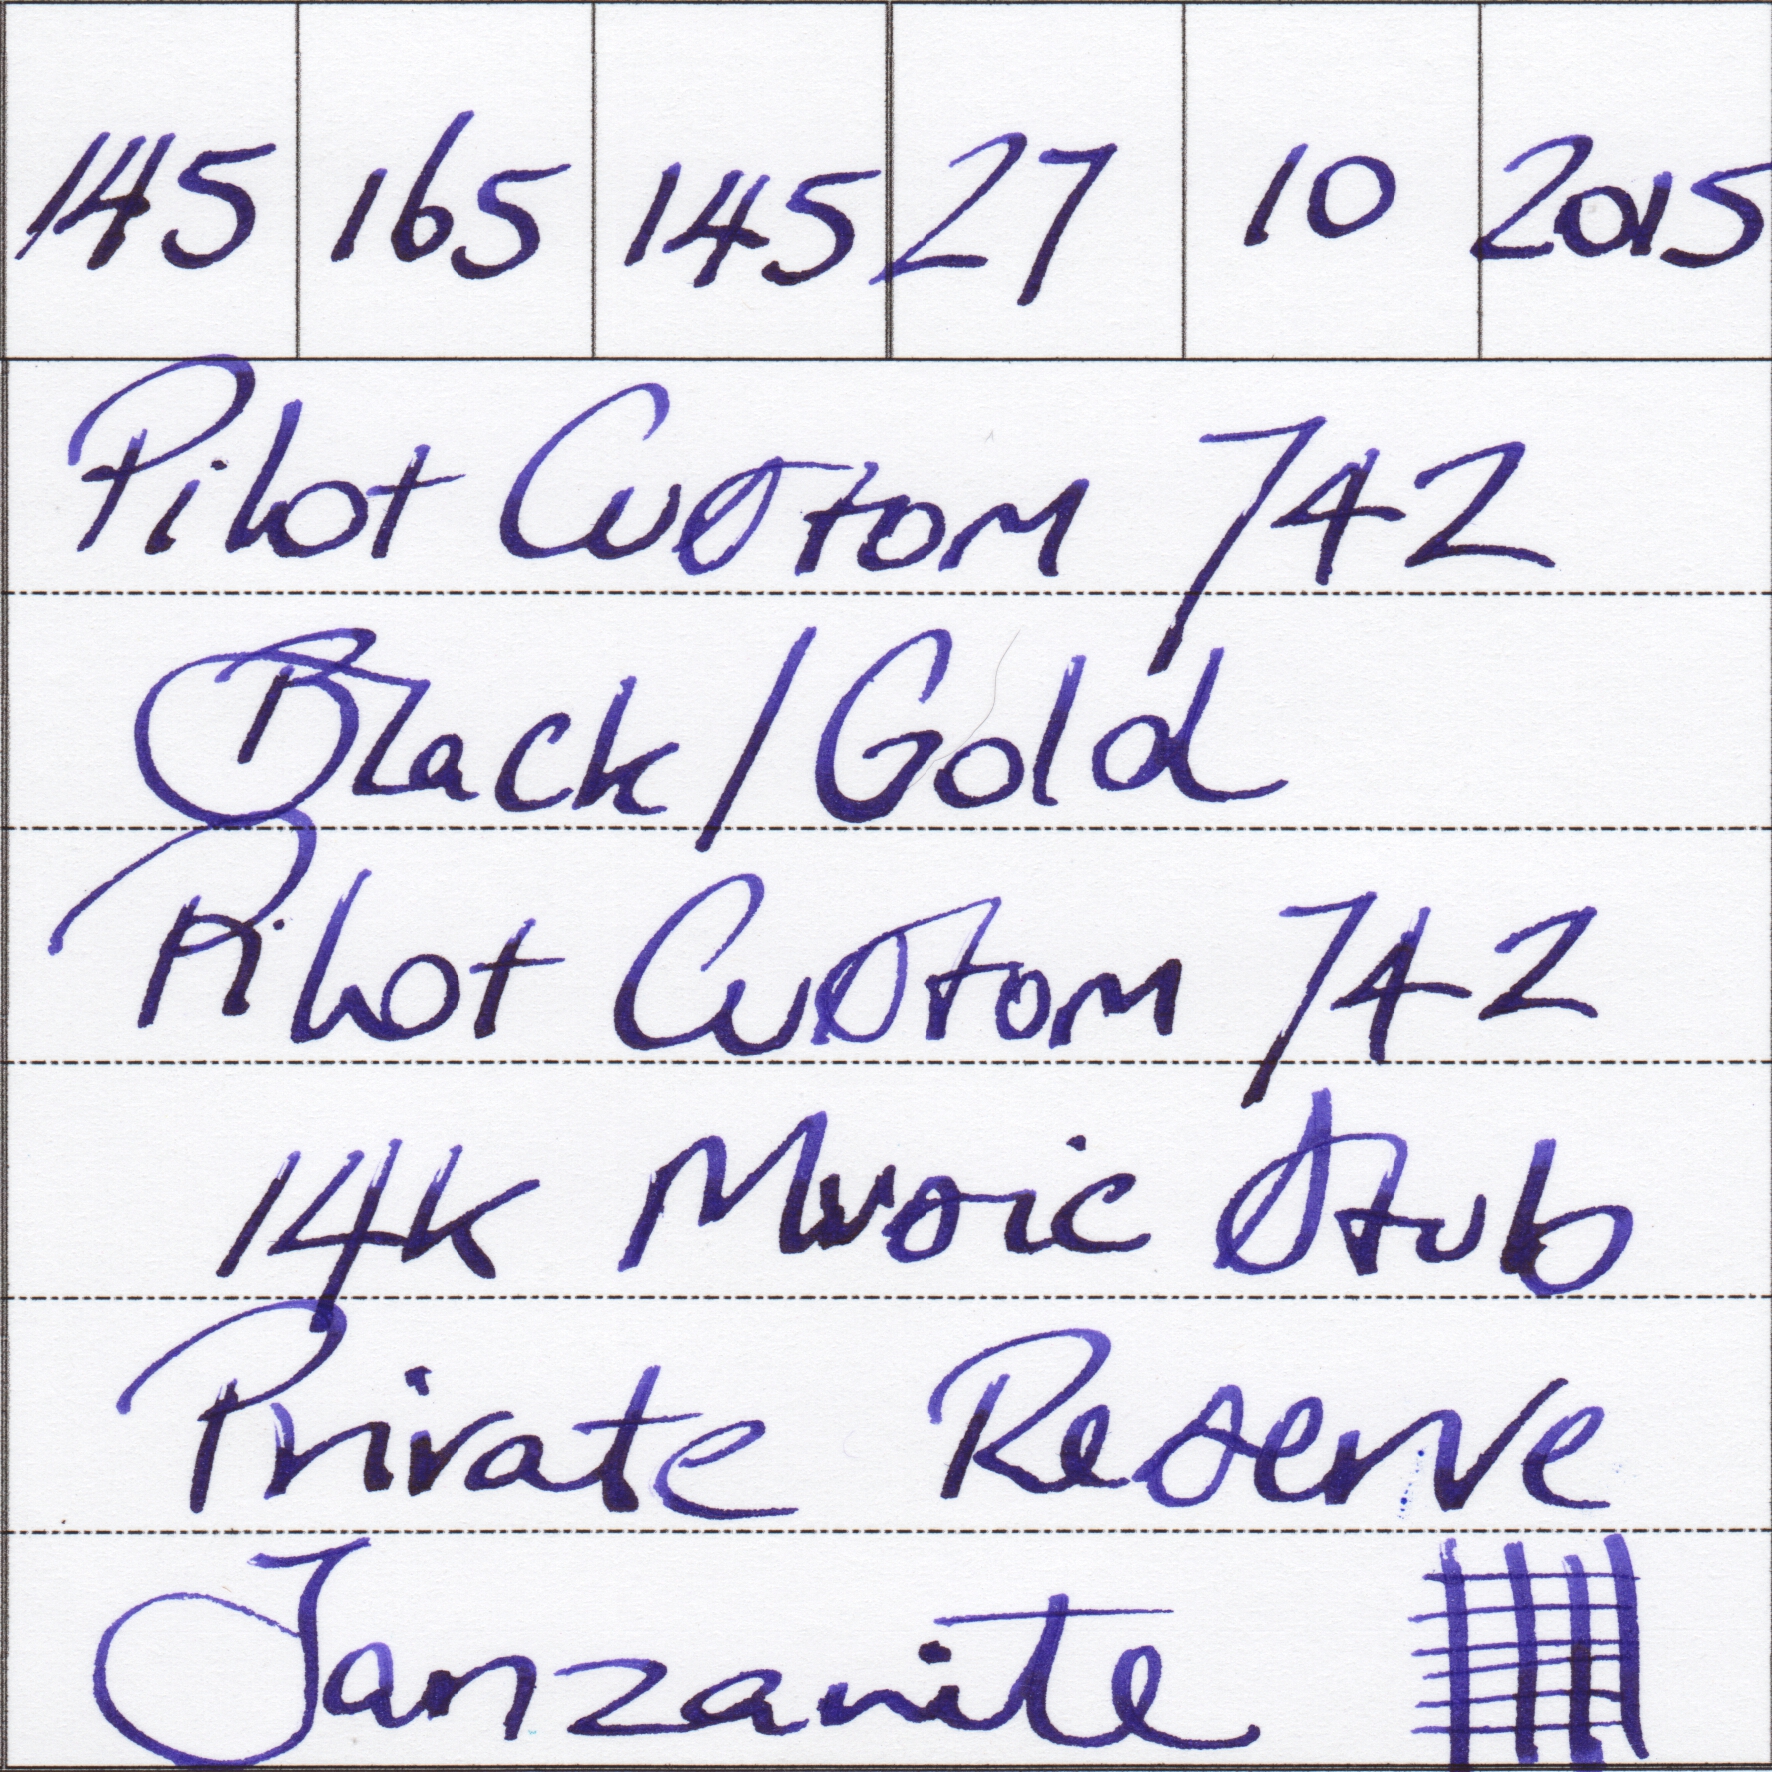 145 165 145 27 10 2015
Pilot Custom 742
Black/Gold
Pilot Custom 742
14K Music Stub
Private Reserve
Tanzanite